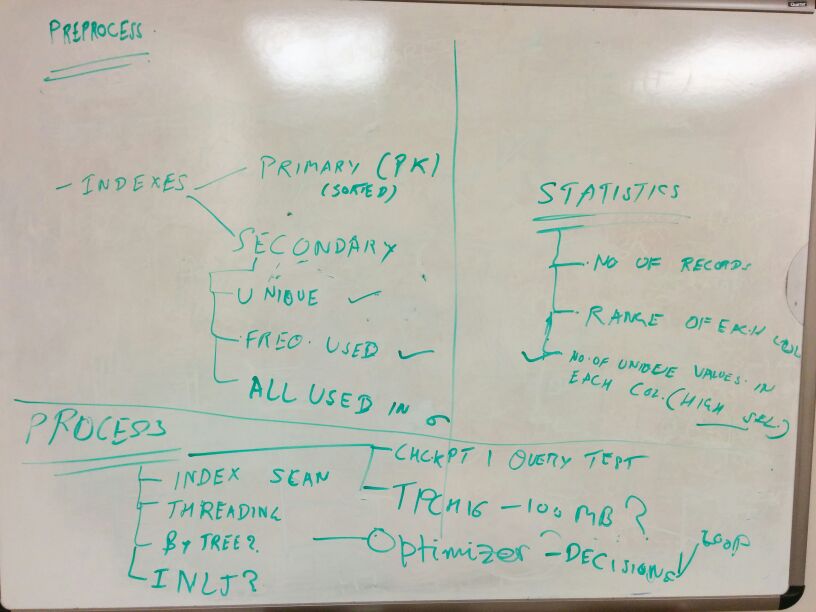 PREPROCESS
- INDEXES
PRIMARY (PK)
(SORTED)
SECONDARY
UNIQUE ✓
FREQ. USED ✓
ALL USED IN σ
STATISTICS
NO OF RECORDS
RANGE OF EACH COL
✓ NO. OF UNIQUE VALUES IN
EACH COL. (HIGH SEL.)
PROCESS
INDEX SCAN
THREADING
B+ TREE?
INLJ?
CHCKPT 1 QUERY TEST
TPCH16 - 100 MB?
Optimizer - DECISIONS